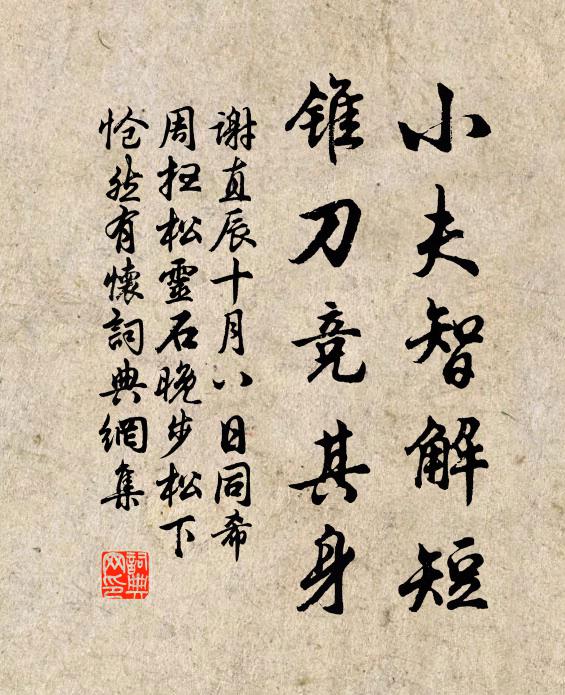 小夫智解短
錐刀竞其身
谢直辰十月八日同希
周扫松靈石晚步松下
怆然有懷詞典網集
詞典
网印